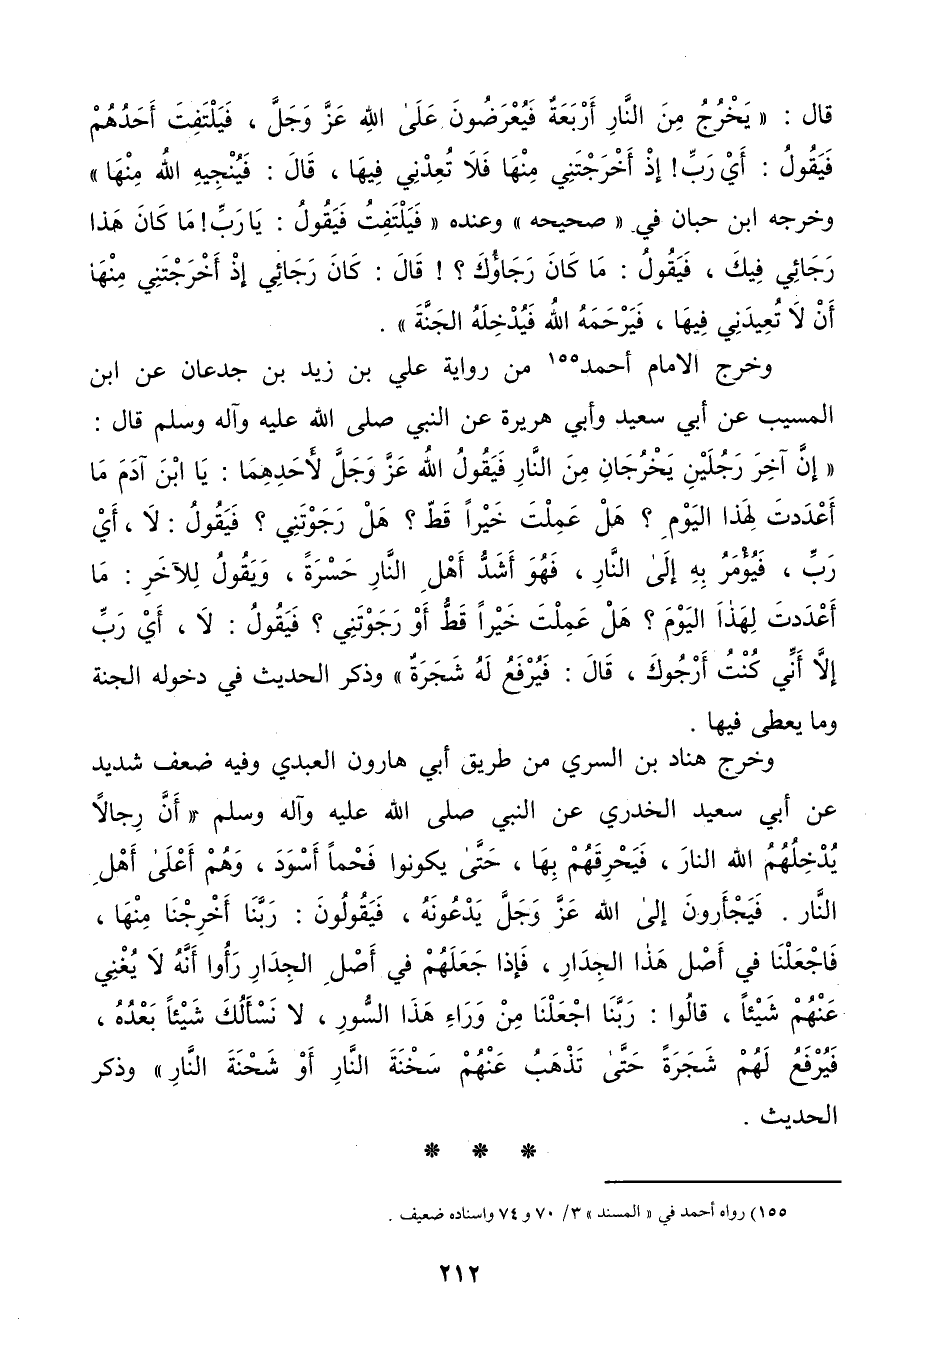 قال : « يَخْرُجُ مِنَ النَّارِ أَرْبَعَةٌ فَيُعْرَضُونَ عَلَىٰ اللهِ عَزَّ وَجَلَّ ، فَيَلْتَفِتَ أَحَدُهُمْ
فَيَقُولُ : أَيْ رَبِّ! إِذْ أَخْرَجْتَنِي مِنْهَا فَلَا تُعِدْنِي فِيهَا ، قَالَ : فَيُنْجِيهِ اللهُ مِنْهَا »
وخرجه ابن حبان في « صحيحه » وعنده « فَيَلْتَفِتُ فَيَقُولُ : يَا رَبِّ! مَا كَانَ هَذا
رَجَائِي فِيكَ ، فَيَقُولُ : مَا كَانَ رَجَاؤُكَ ؟ ! قَالَ : كَانَ رَجَائِي إِذْ أَخْرَجْتَنِي مِنْهَا
أَنْ لَا تُعِيدَنِي فِيهَا ، فَيَرْحَمَهُ اللهُ فَيُدْخِلَهُ الجَنَّةَ » .
وخرج الامام أحمد١٥٥ من رواية علي بن زيد بن جدعان عن ابن
المسيب عن أبي سعيد وأبي هريرة عن النبي صلى الله عليه وآله وسلم قال :
« إنَّ آخِرَ رَجُلَيْنِ يَخْرُجَانِ مِنَ النَّارِ فَيَقُولُ اللهُ عَزَّ وَجَلَّ لأَحَدِهِمَا : يَا ابْنَ آدَمَ مَا
أَعْدَدتَ لِهَذا اليَوْمِ ؟ هَلْ عَمِلْتَ خَيْراً قَطّ ؟ هَلْ رَجَوْتَنِي ؟ فَيَقُولُ : لَا ، أَيْ
رَبِّ ، فَيُؤْمَرُ بِهِ إِلَىٰ النَّارِ ، فَهُوَ أَشَدُّ أَهْلِ النَّارِ حَسْرَةً ، وَيَقُولُ لِلآخَرِ : مَا
أَعْدَدتَ لِهَذَا اليَوْمَ ؟ هَلْ عَمِلْتَ خَيْراً قَطُّ أَوْ رَجَوْتَنِي ؟ فَيَقُولُ : لَا ، أَيْ رَبِّ
إلَّا أَنِّي كُنْتُ أَرْجُوكَ ، قَالَ : فَيُرْفَعُ لَهُ شَجَرَةٌ » وذكر الحديث في دخوله الجنة
وما يعطى فيها .
وخرج هناد بن السري من طريق أبي هارون العبدي وفيه ضعف شديد
عن أبي سعيد الخدري عن النبي صلى الله عليه وآله وسلم « أَنَّ رِجالاً
يُدْخِلُهُمُ الله النارَ ، فَيَحْرِقَهُمْ بِهَا ، حَتَّىٰ يكونوا فَحْماً أَسْوَدَ ، وَهُمْ أَعْلَىٰ أَهْلِ
النَّار . فَيَجْأَرونَ إلىٰ الله عَزَّ وَجَلَّ يَدْعُونَهُ ، فَيَقُولُونَ : رَبَّنَا أَخْرِجْنَا مِنْهَا ،
فَاجْعَلْنَا في أَصْلِ هَذَا الجِدَارِ ، فَإذا جَعَلَهُمْ في أَصْلِ الجِدَارِ رَأُوا أَنَّهُ لَا يُغْنِي
عَنْهُمْ شَيْئاً ، قالُوا : رَبَّنَا اجْعَلْنَا مِنْ وَرَاءِ هَذَا السُّورِ ، لا نَسْأَلُكَ شَيْئاً بَعْدُهُ ،
فَيُرْفَعُ لَهُمْ شَجَرَةً حَتَّىٰ تَذْهَبُ عَنْهُمْ سَخْنَةَ النَّارِ أَوْ شَحْنَةَ النَّارِ » وذكر
الحديث .
* * *
١٥٥) رواه أحمد في « المسند » ٣/ ٧٠ و ٧٤ واسناده ضعيف .
٢١٢